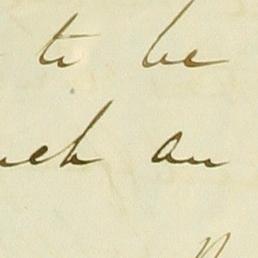 to be
uch an